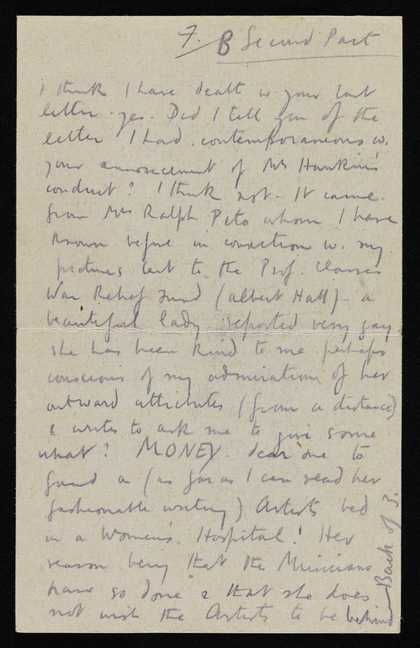 7. B Second Part
I think I have dealt w. your last
letter. yes. Did I tell you of the
letter I had. contemporaneous w.
your announcement of Mr Hawkins's
conduct? I think not. It came
from Mrs Ralph Peto whom I have
known before in connection w. my
pictures lent to the Prof. Classes
War Relief Fund (Albert Hall). a
beautiful lady. reported very gay
she has been kind to me perhaps
conscious of my admiration of her
outward attributes (from a distance)
& writes to ask me to give some
what? MONEY. dear one to
found a (as far as I can read her
fashionable writing) Artists bed
in a Women's Hospital! Her
reason being that the Musicians
have so done & that she does
not wish the Artists to be behind
Back of 3.